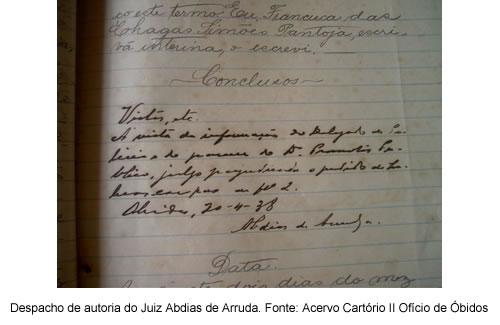 co este termo. Eu, Francisca das
Chagas Simões Pantoja, escri-
vã interina, o escrevi.
Conclusos
Vistos, etc.
A vista da informação do Delegado de Po-
licia e do parecer do Dr. Promotor Pu-
blico, julgo o pedido de
fls 2.
Obidos, 20-4-38
Abdias de Arruda.
Data.
dois dias do mez
Despacho de autoria do Juiz Abdias de Arruda. Fonte: Acervo Cartório II Ofício de Óbidos